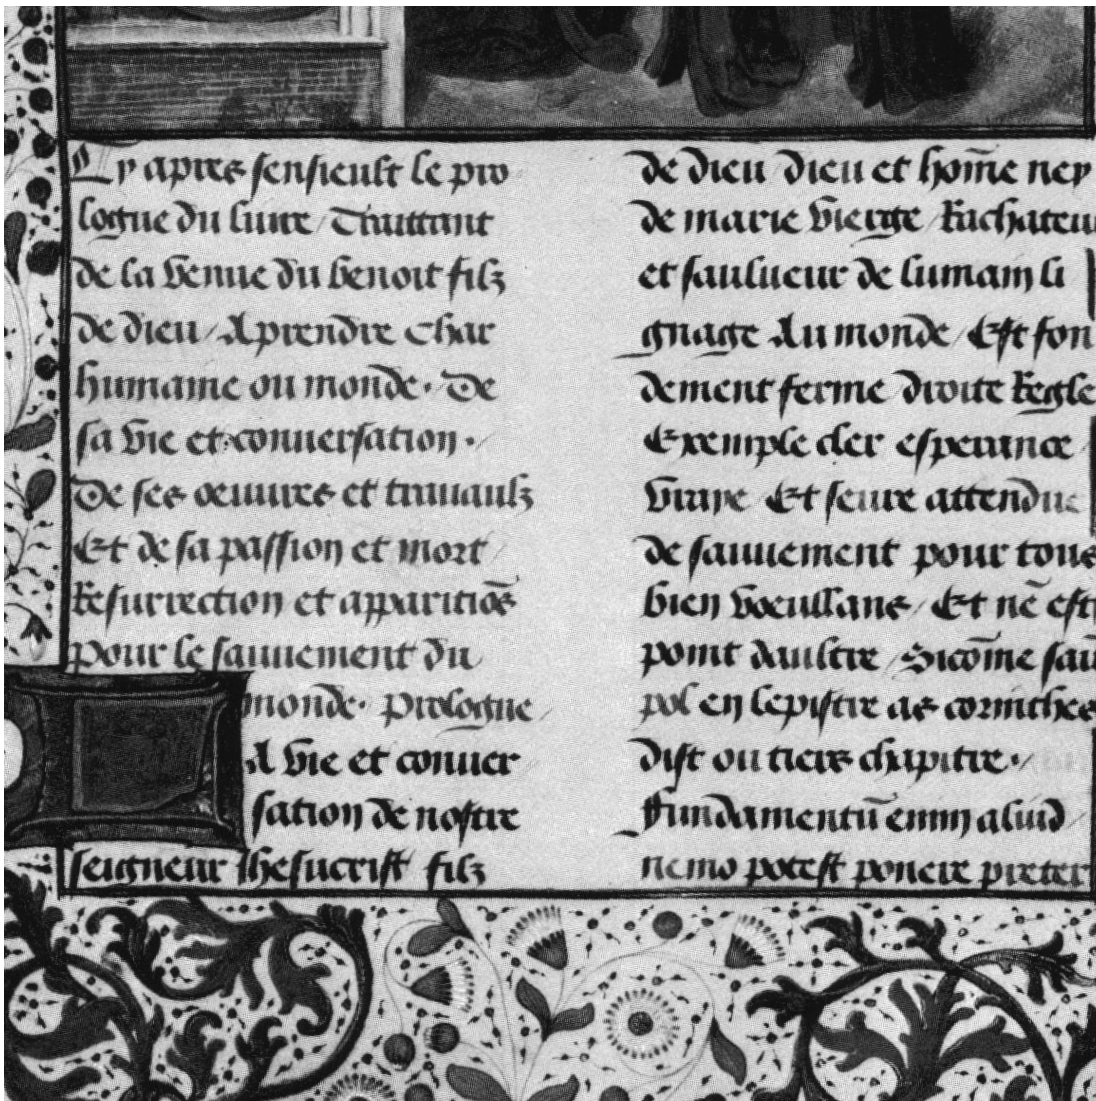 Cy apres sensieult le pro
logue du livre / Traittant
de la venue du benoit filz
de dieu / A prendre char
humaine ou monde · De
sa vie et conversation ·
De ses oeuvres et travaulz
Et de sa passion et mort /
Resurrection et apparitiōs
pour le sauvement du
monde · Prologue /
A vie et conver
sation de nostre
seigneur Jhesucrist filz
de dieu / dieu et hom̄e ney
de marie vierge / Rachateu
et saulueur de lumain li
gnage Au monde / Est fon
dement ferme / droite Regle
Exemple cler esperance /
vraye / Et seure attendue
de sauvement pour tous
bien voeullans / Et nē est
point daultre / Sicōme sai
pol en lepistre as corinthes
dist ou tiers chapitre ·
Fundamentū enim aliud /
nemo potest ponere preter